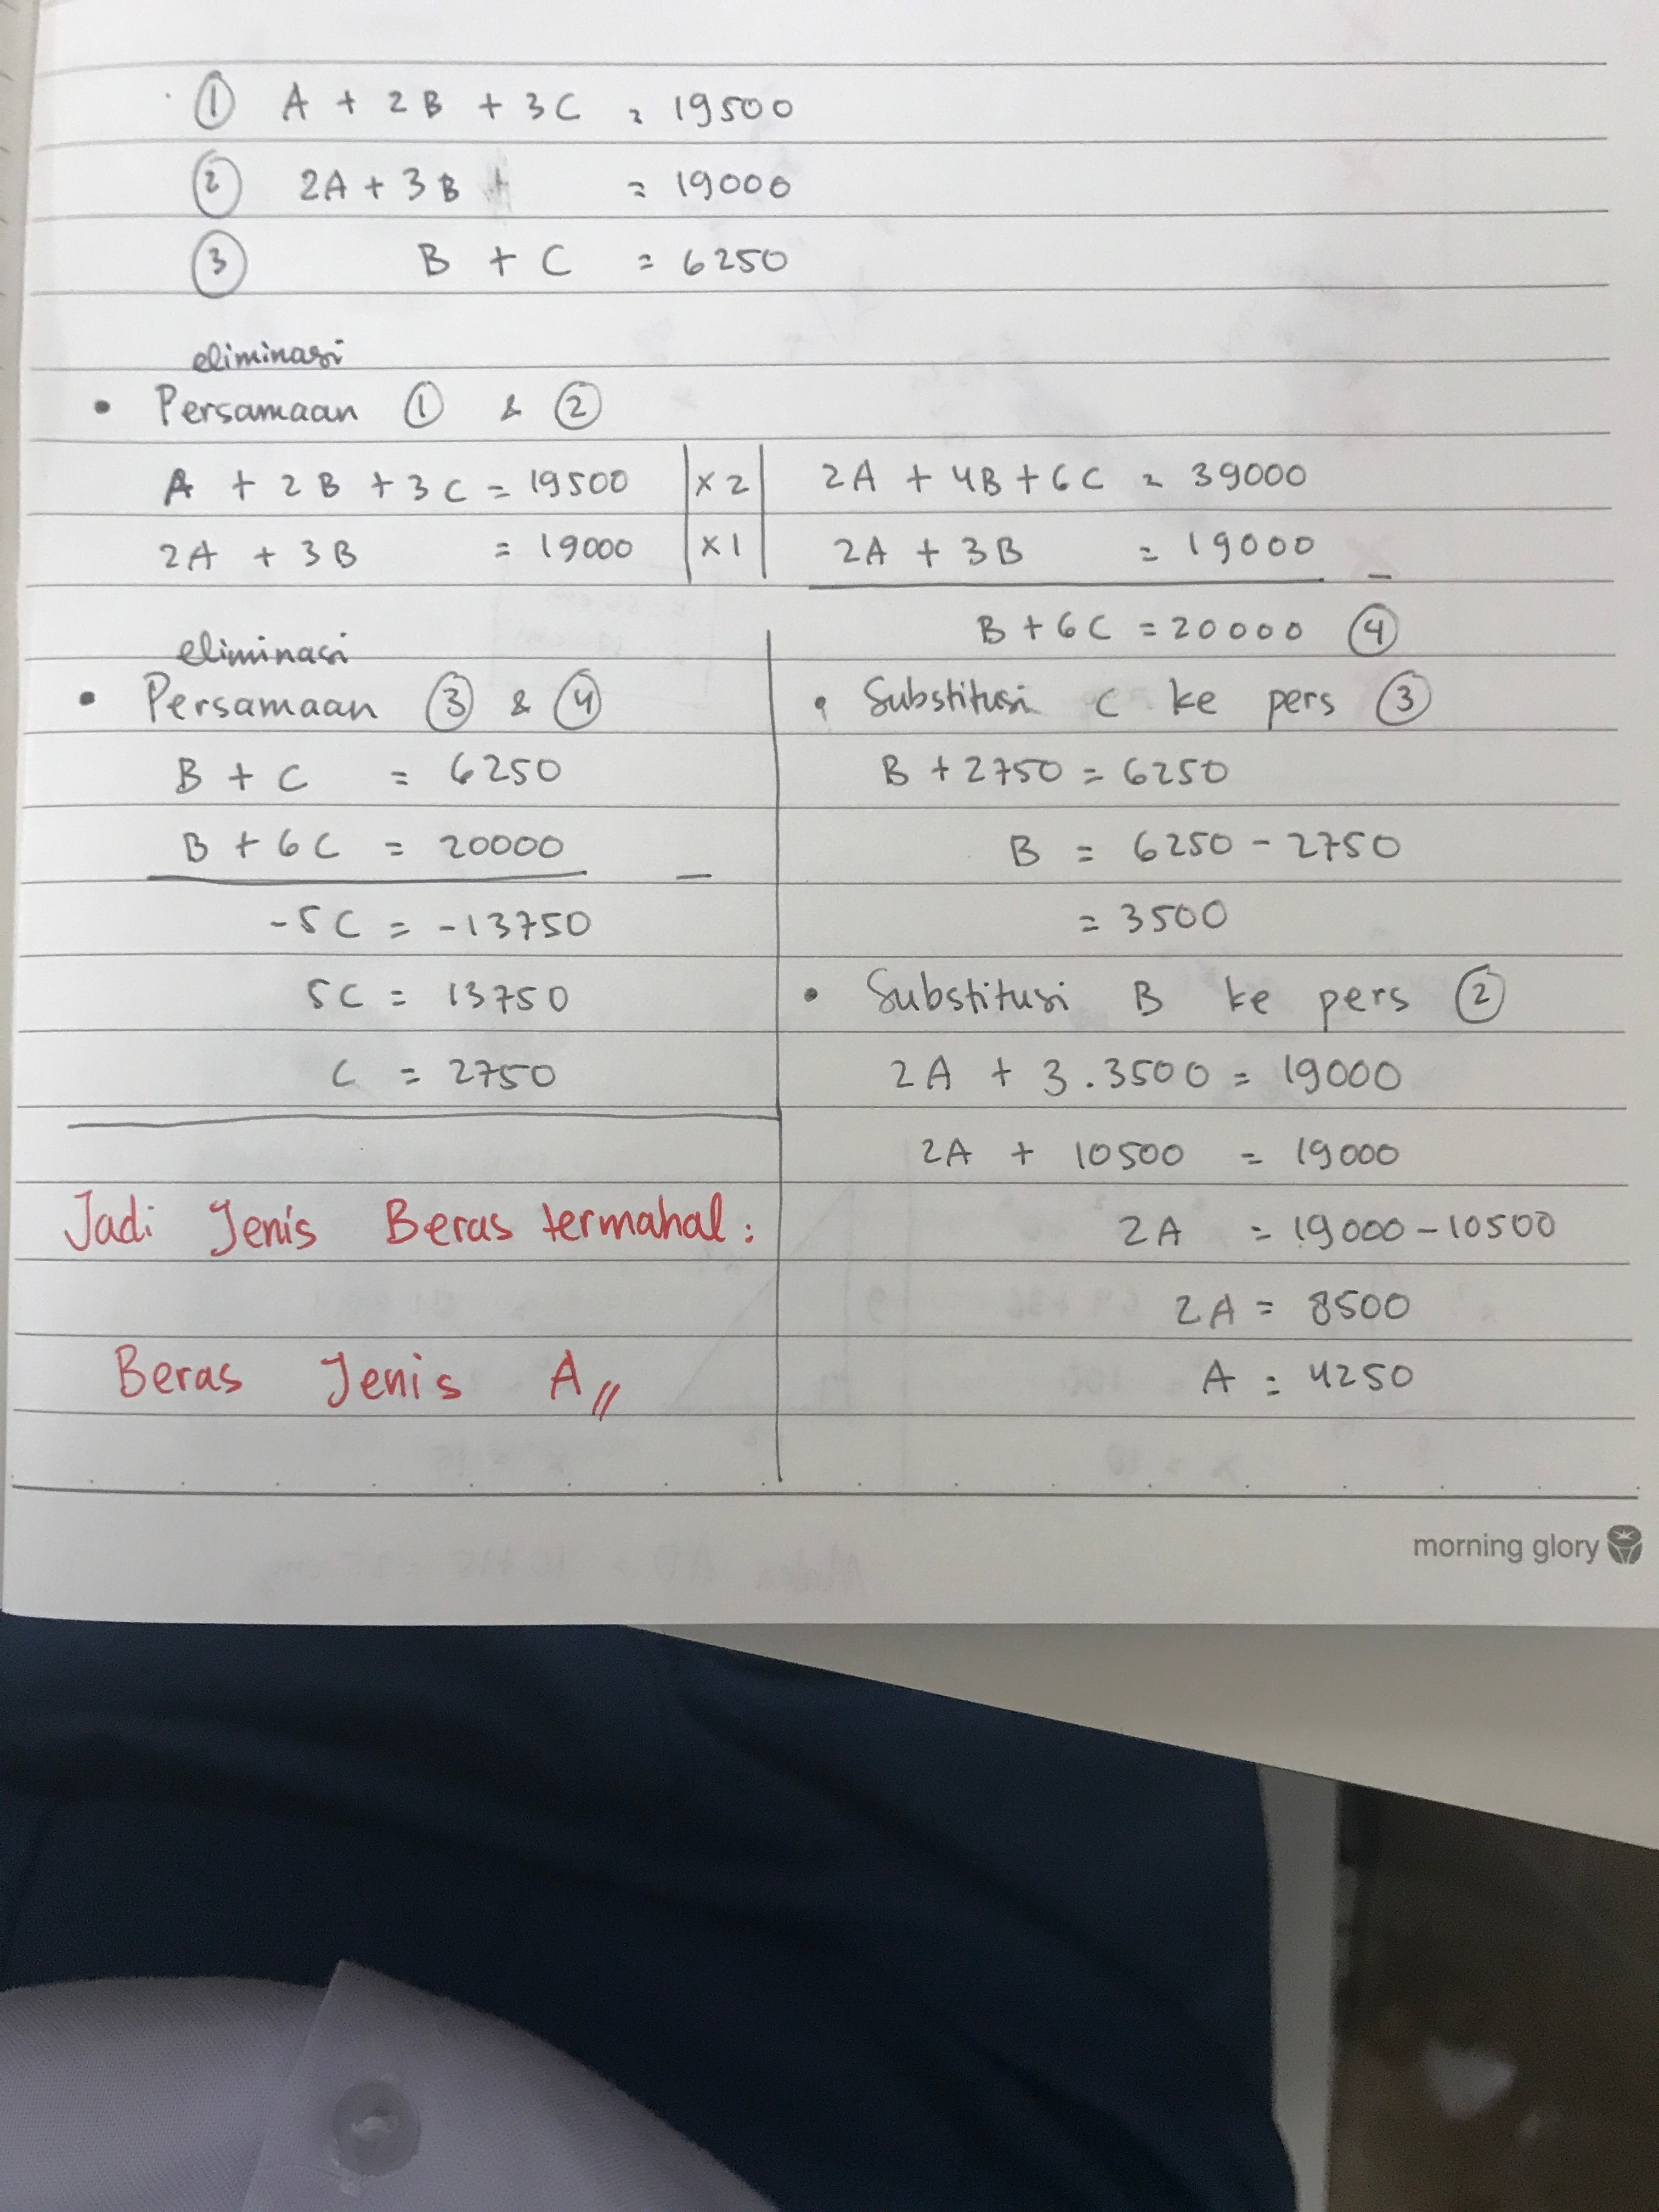 ① A + 2B + 3C = 19500
② 2A + 3B = 19000
③ B + C = 6250
eliminasi
• Persamaan ① & ②
A + 2B + 3C = 19500 | x 2 | 2A + 4B + 6C = 39000
2A + 3B = 19000 | x 1 | 2A + 3B = 19000 –
B + 6C = 20000 ④
eliminasi
• Persamaan ③ & ④
B + C = 6250
B + 6C = 20000 –
-5C = -13750
5C = 13750
C = 2750
Jadi Jenis Beras termahal :
Beras Jenis A //
• Substitusi C ke pers ③
B + 2750 = 6250
B = 6250 - 2750
= 3500
• Substitusi B ke pers ②
2A + 3 . 3500 = 19000
2A + 10500 = 19000
2A = 19000 - 10500
2A = 8500
A = 4250
morning glory